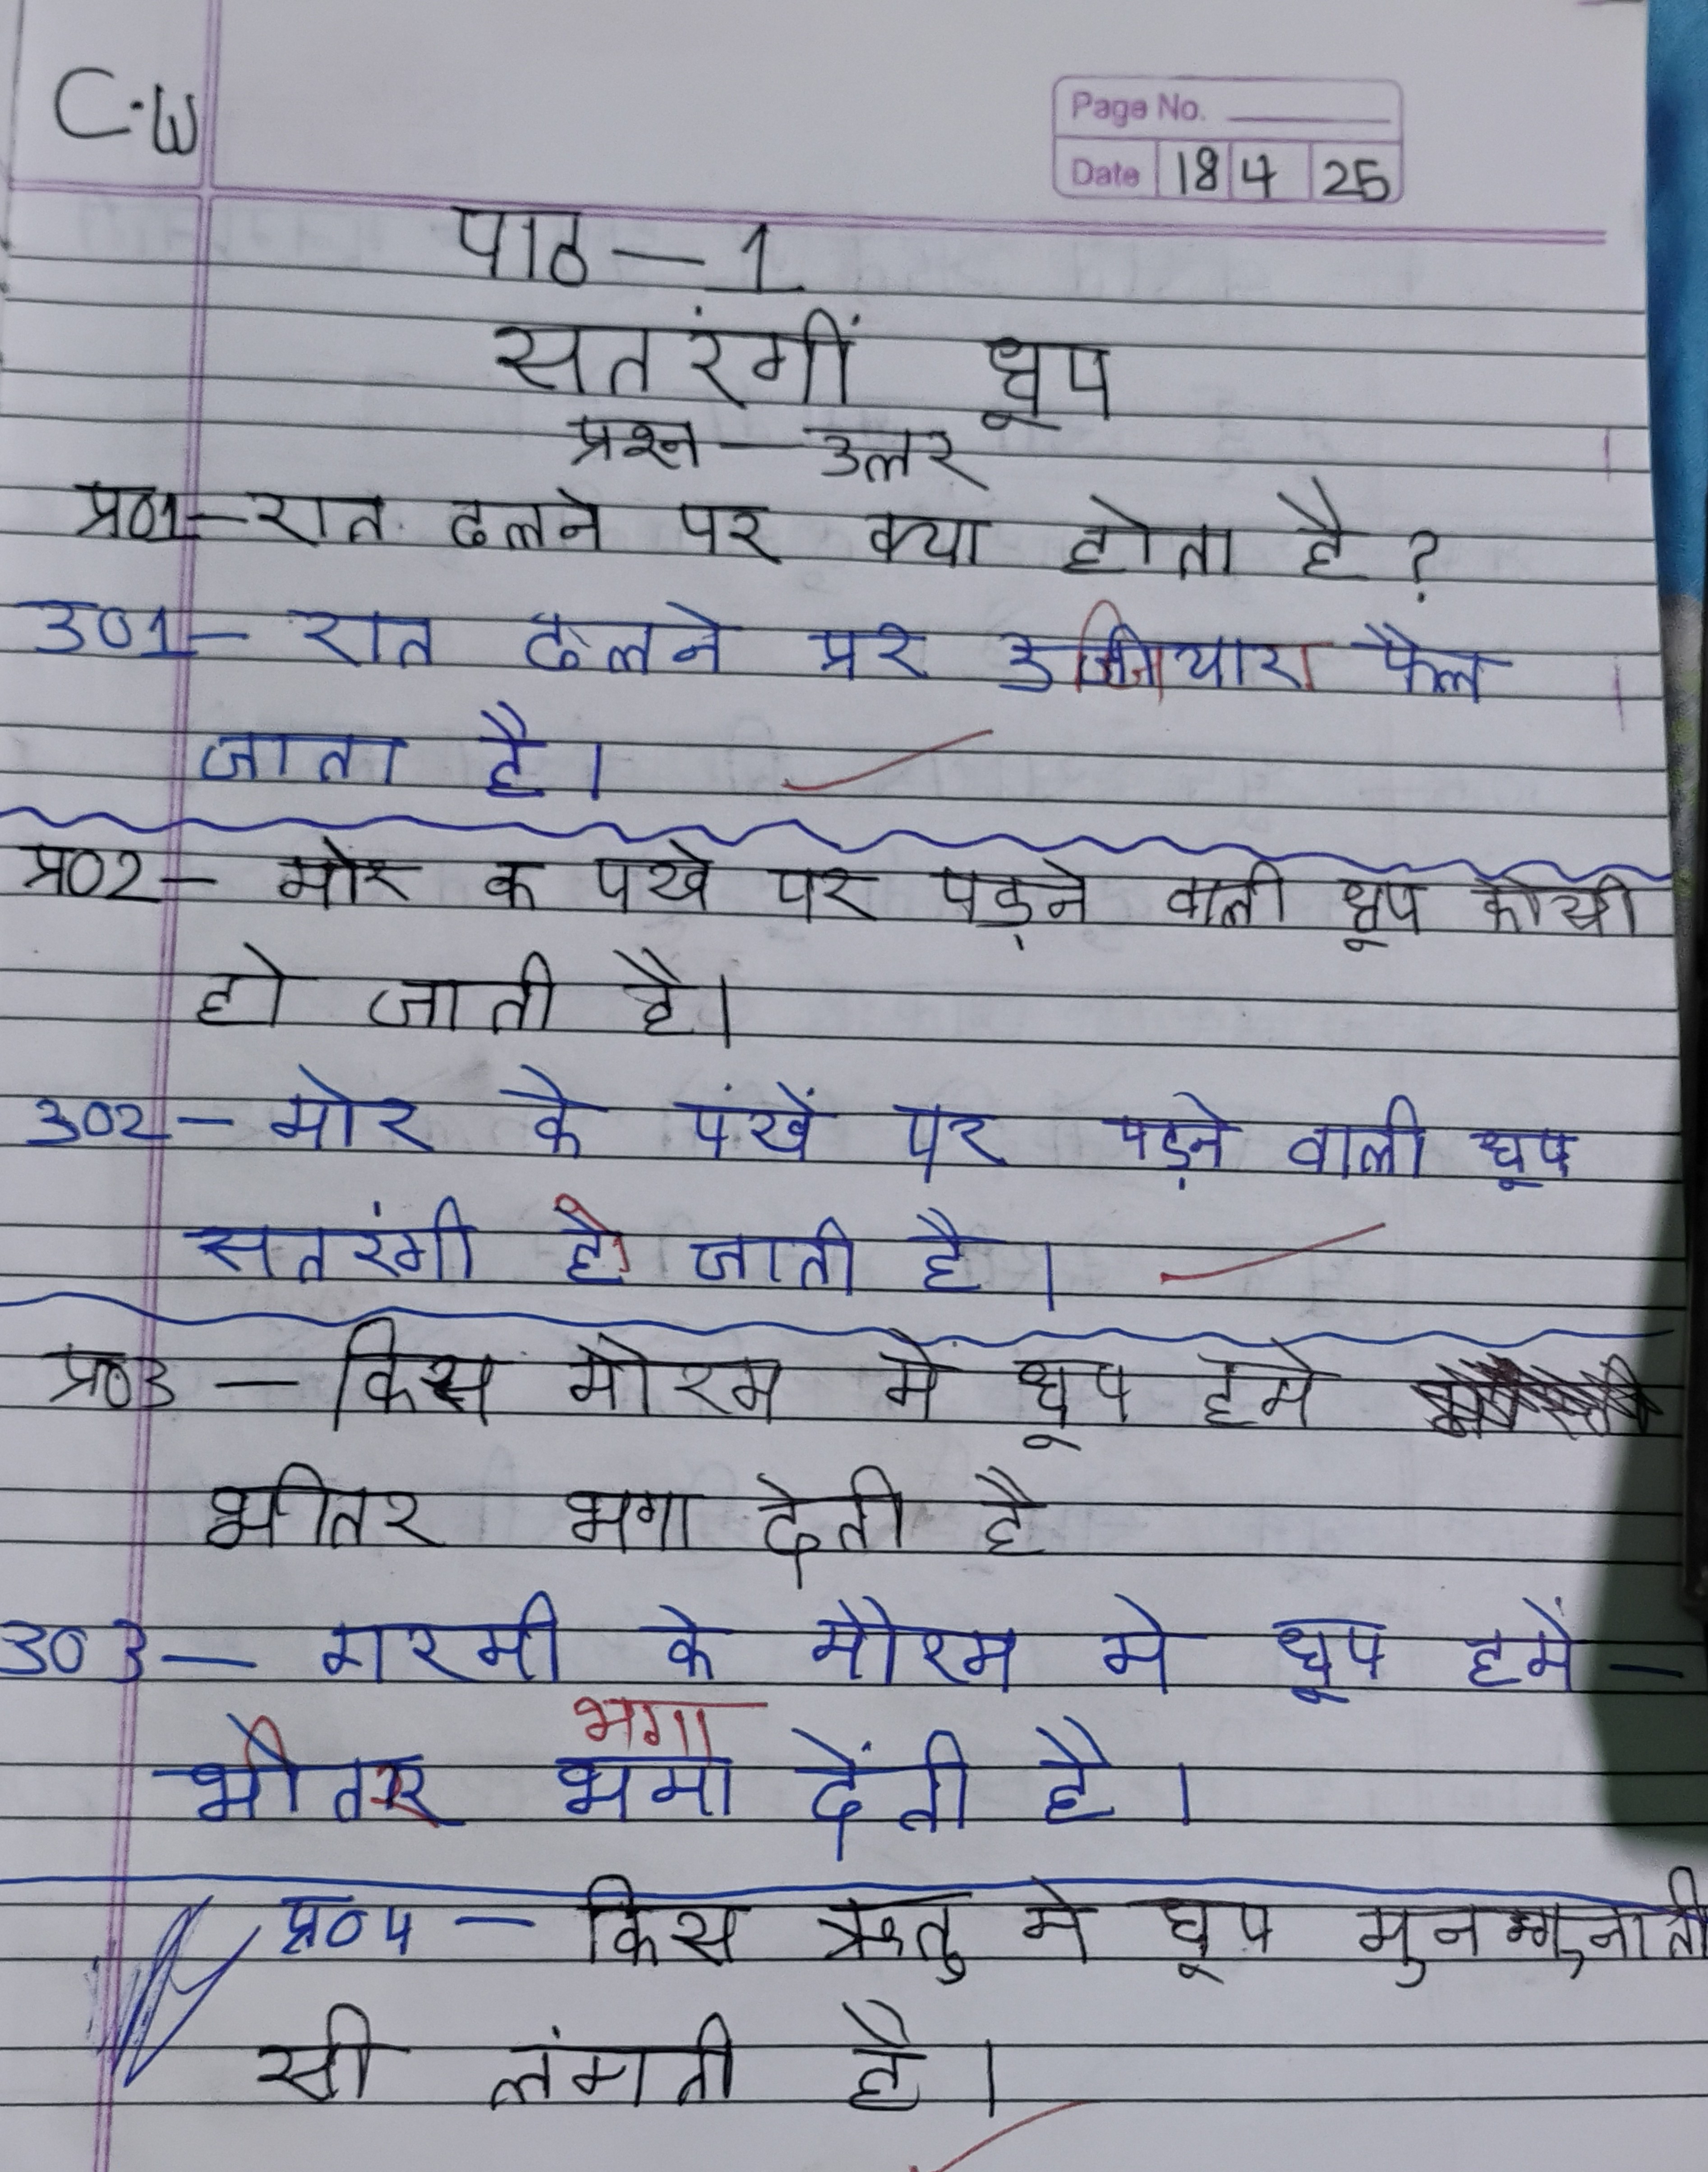 C.W
Page No.
Date 18 4 25
पाठ — 1
सतरंगीं धूप
प्रश्न — उलर
प्र01 — रात ढलने पर क्या होता है ?
उ01 — रात ढलने पर उजियारा फैल
जाता है ।
प्र02 — मोर क पखे पर पड़ने वाली धूप कोसी
हो जाती है।
उ02 — मोर के पंखें पर पड़ने वाली धूप
सतरंगी हो जाती है ।
प्र03 — किस मोरम में धूप हमे
भीतर भगा देती है
उ03 — गरमी के मौरम मे धूप हमें —
भगा
भीतर भमा देंती है ।
प्र04 — किस ऋतु मे धूप
सी लंगती है ।